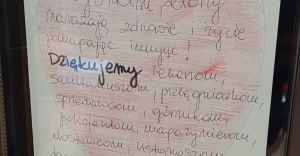 narażają zdrowie i życie
pomagając innym!
Dziękujemy
sanitariuszom, pielęgniarkom,
sprzedawcom, górnikom,
policjantom, inżynierom,
dostawcom, listonoszom